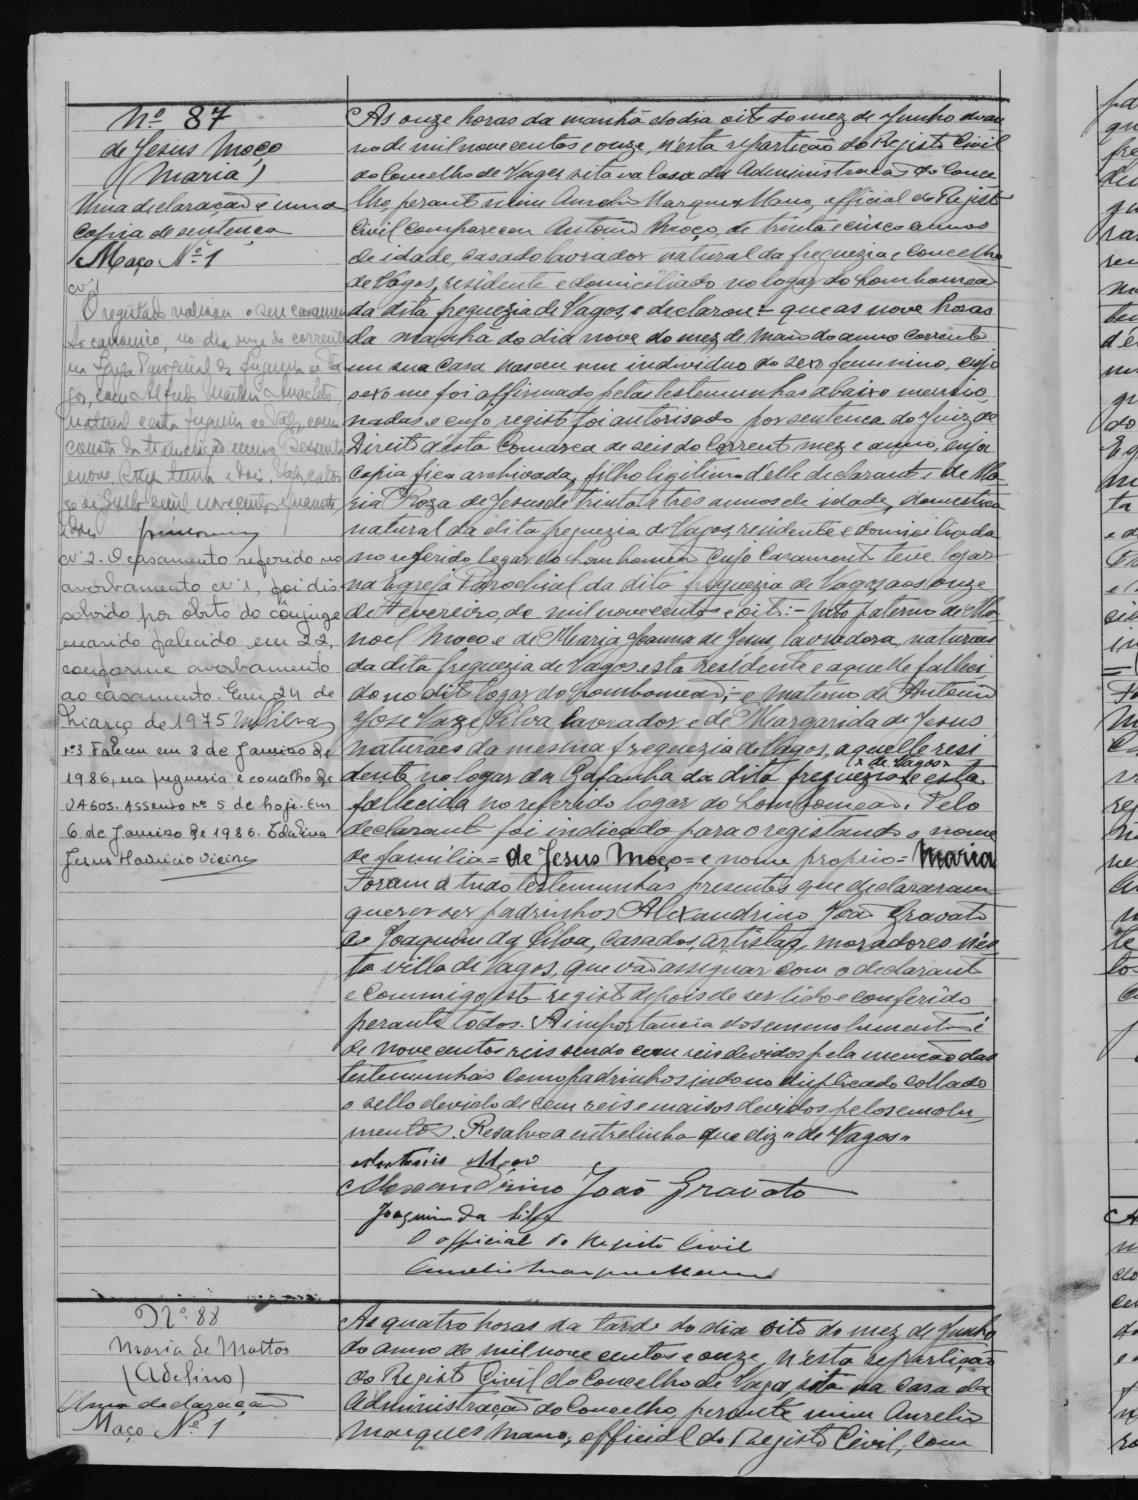 Nº 87
de Jesus Moço
(Maria)
Uma declaração e uma
copia de sentença
Maço Nº 1
nº 1
O registado realisou o seu casamen
to canonico, no dia onze do corrente
na Igreja Paroquial da freguesia de Va
gos, com Alfredo Martins
natural desta freguesia de Vagos, como
consta da transcrição numero sessenta
e nove trinta e dois. Vagos, cator
ze de Julho de mil novecentos e quarenta
e dois
nº 2. O casamento referido no
averbamento nº 1, foi dis-
solvido por obito do cônjuge
marido falecido em 22,
conforme averbamento
ao casamento. Em 24 de
Março de 1975 MSilva
nº 3 Faleceu em 3 de Janeiro de
1986, na freguesia e concelho de
VAGOS. Assento nº 5 de hoje. Em
6 de Janeiro de 1986. Idalina
Jesus Mauricio Vieira
As onze horas da manhã do dia oito do mez de Junho do an
no de mil nove centos e onze, n'esta repartição do Registo Civil
do Concelho de Vagos sita na Casa da Administração do Conce
lho, perante mim Aurelio Marques Mano, official do Registo
Civil compareceu Antonio Moço, de trinta e cinco annos
de idade, casado lavrador natural da freguezia e concelho
de Vagos, residente e domiciliado no logar do Lombomeão
da dita freguezia de Vagos, e declarou = que as nove horas
da manhã do dia nove do mez de Maio do anno corrente
em sua casa nasceu um individuo do sexo feminino, cujo
sexo me foi affirmado pelas testemunhas abaixo mencio,
nadas e cujo registo foi autorisado por sentença do Juiz de
Direito desta Comarca de seis do corrente mez e anno, cuja
copia fica archivada, filho legitimo d'elle declarante e de Ma-
ria Roza de Jesus de trinta e tres annos de idade, domestica
natural da dita freguezia de Vagos, residente e domiciliada
no referido logar do Lombomeão cujo casamento teve logar
na Igreja Parochial da dita freguezia de Vagos, aos onze
de Fevereiro, de mil nove centos e oito: - neto paterno de Ma-
noel Moço e de Maria Joanna de Jesus, lavradora, naturaes
da dita freguezia de Vagos esta residente e aquelle falleci
do no dito logar do Lombomeão; - e materno de Antonio
José Vaz e Silva lavrador e de Margarida de Jesus
naturaes da mesma freguezia de Vagos, aquelle resi
"de Vagos"
dente no logar da Gafanha da dita freguezia e esta
fallecida no referido logar do Lombomeão. Pelo
declarante foi indicado para o registando o nome
de familia = de Jesus Moço = e nome proprio = Maria
Foram a tudo testemunhas presentes que declararam
querer ser padrinhos Alexandrino João Gravato
e Joaquim da Silva, casados, artistas, moradores nes-
ta villa de Vagos, que vão assignar com o declarante
e commigo este registo depois de ser lido e conferido
perante todos. A importancia dos emolumentos é
de nove centos reis sendo cem reis devidos pela menção das
testemunhas como padrinhos indo no duplicado collado
o sello devido de cem reis e mais os devidos pelos emolu-
mentos. Resalvo a entrelinha que diz "de Vagos"
Antonio Moço
Alexandrino João Gravato
Joaquim da Silva
O official do Registo Civil
Aurelio Marques Mano
Nº 88
Maria de Mattos
(Adelino)
Uma declaração
Maço Nº 1
As quatro horas da tarde do dia oito do mez de Junho
do anno de mil nove centos e onze, n'esta repartição
do Registo Civil do Concelho de Vagos sita na casa da
Administração do Concelho perante mim Aurelio
Marques Mano, official do Registo Civil, com